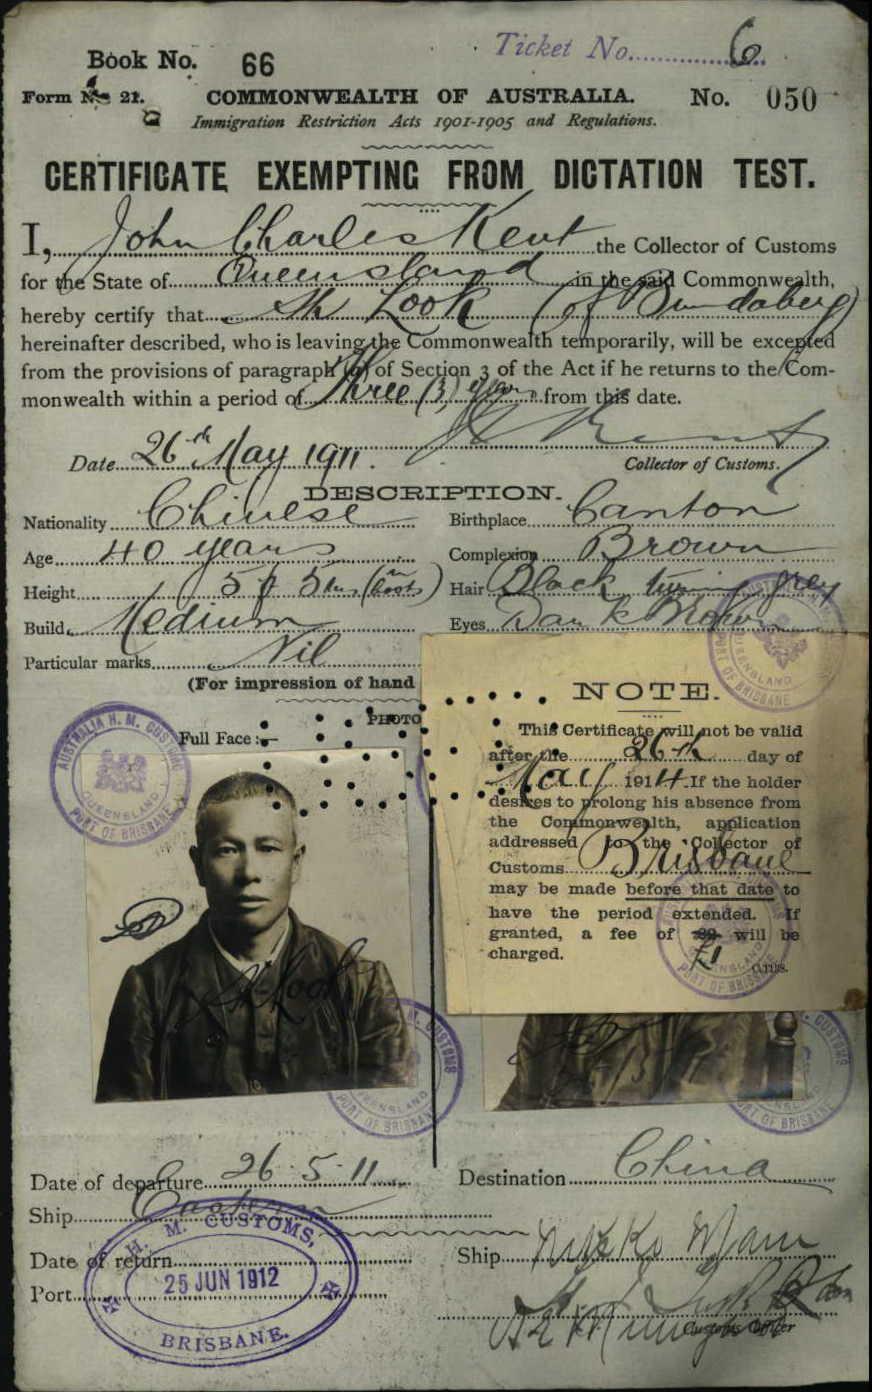 Book No. 66
Ticket No. 6
Form 21.
COMMONWEALTH OF AUSTRALIA.
No. 050
Immigration Restriction Acts 1901-1905 and Regulations.
CERTIFICATE EXEMPTING FROM DICTATION TEST.
I, John Charles Kent the Collector of Customs
for the State of Queensland in the said Commonwealth,
hereby certify that Ah Look (of Bundaberg)
hereinafter described, who is leaving the Commonwealth temporarily, will be excepted
from the provisions of paragraph (a) of Section 3 of the Act if he returns to the Com-
monwealth within a period of Three (3) years from this date.
Date 26th May 1911.
Collector of Customs.
DESCRIPTION.
Nationality Chinese
Birthplace Canton
Age 40 years
Complexion Brown
Height 5 ft 5 ins (in boots)
Hair Black turning grey
Build Medium
Eyes Dark Brown
Particular marks Nil
(For impression of hand
PHOTO
Full Face:—
AUSTRALIA H. M. CUSTOMS
QUEENSLAND
PORT OF BRISBANE
NOTE.
This Certificate will not be valid
after the 26th day of
May 1914. If the holder
desires to prolong his absence from
the Commonwealth, application
addressed to the Collector of
Customs Brisbane
may be made before that date to
have the period extended. If
granted, a fee of £1 will be
charged.
Ah Look
Date of departure 26.5.11
Destination China
Ship Eastern
Date of return
Ship Nikko Maru
Port
H. M. CUSTOMS,
25 JUN 1912
BRISBANE.
Customs Officer